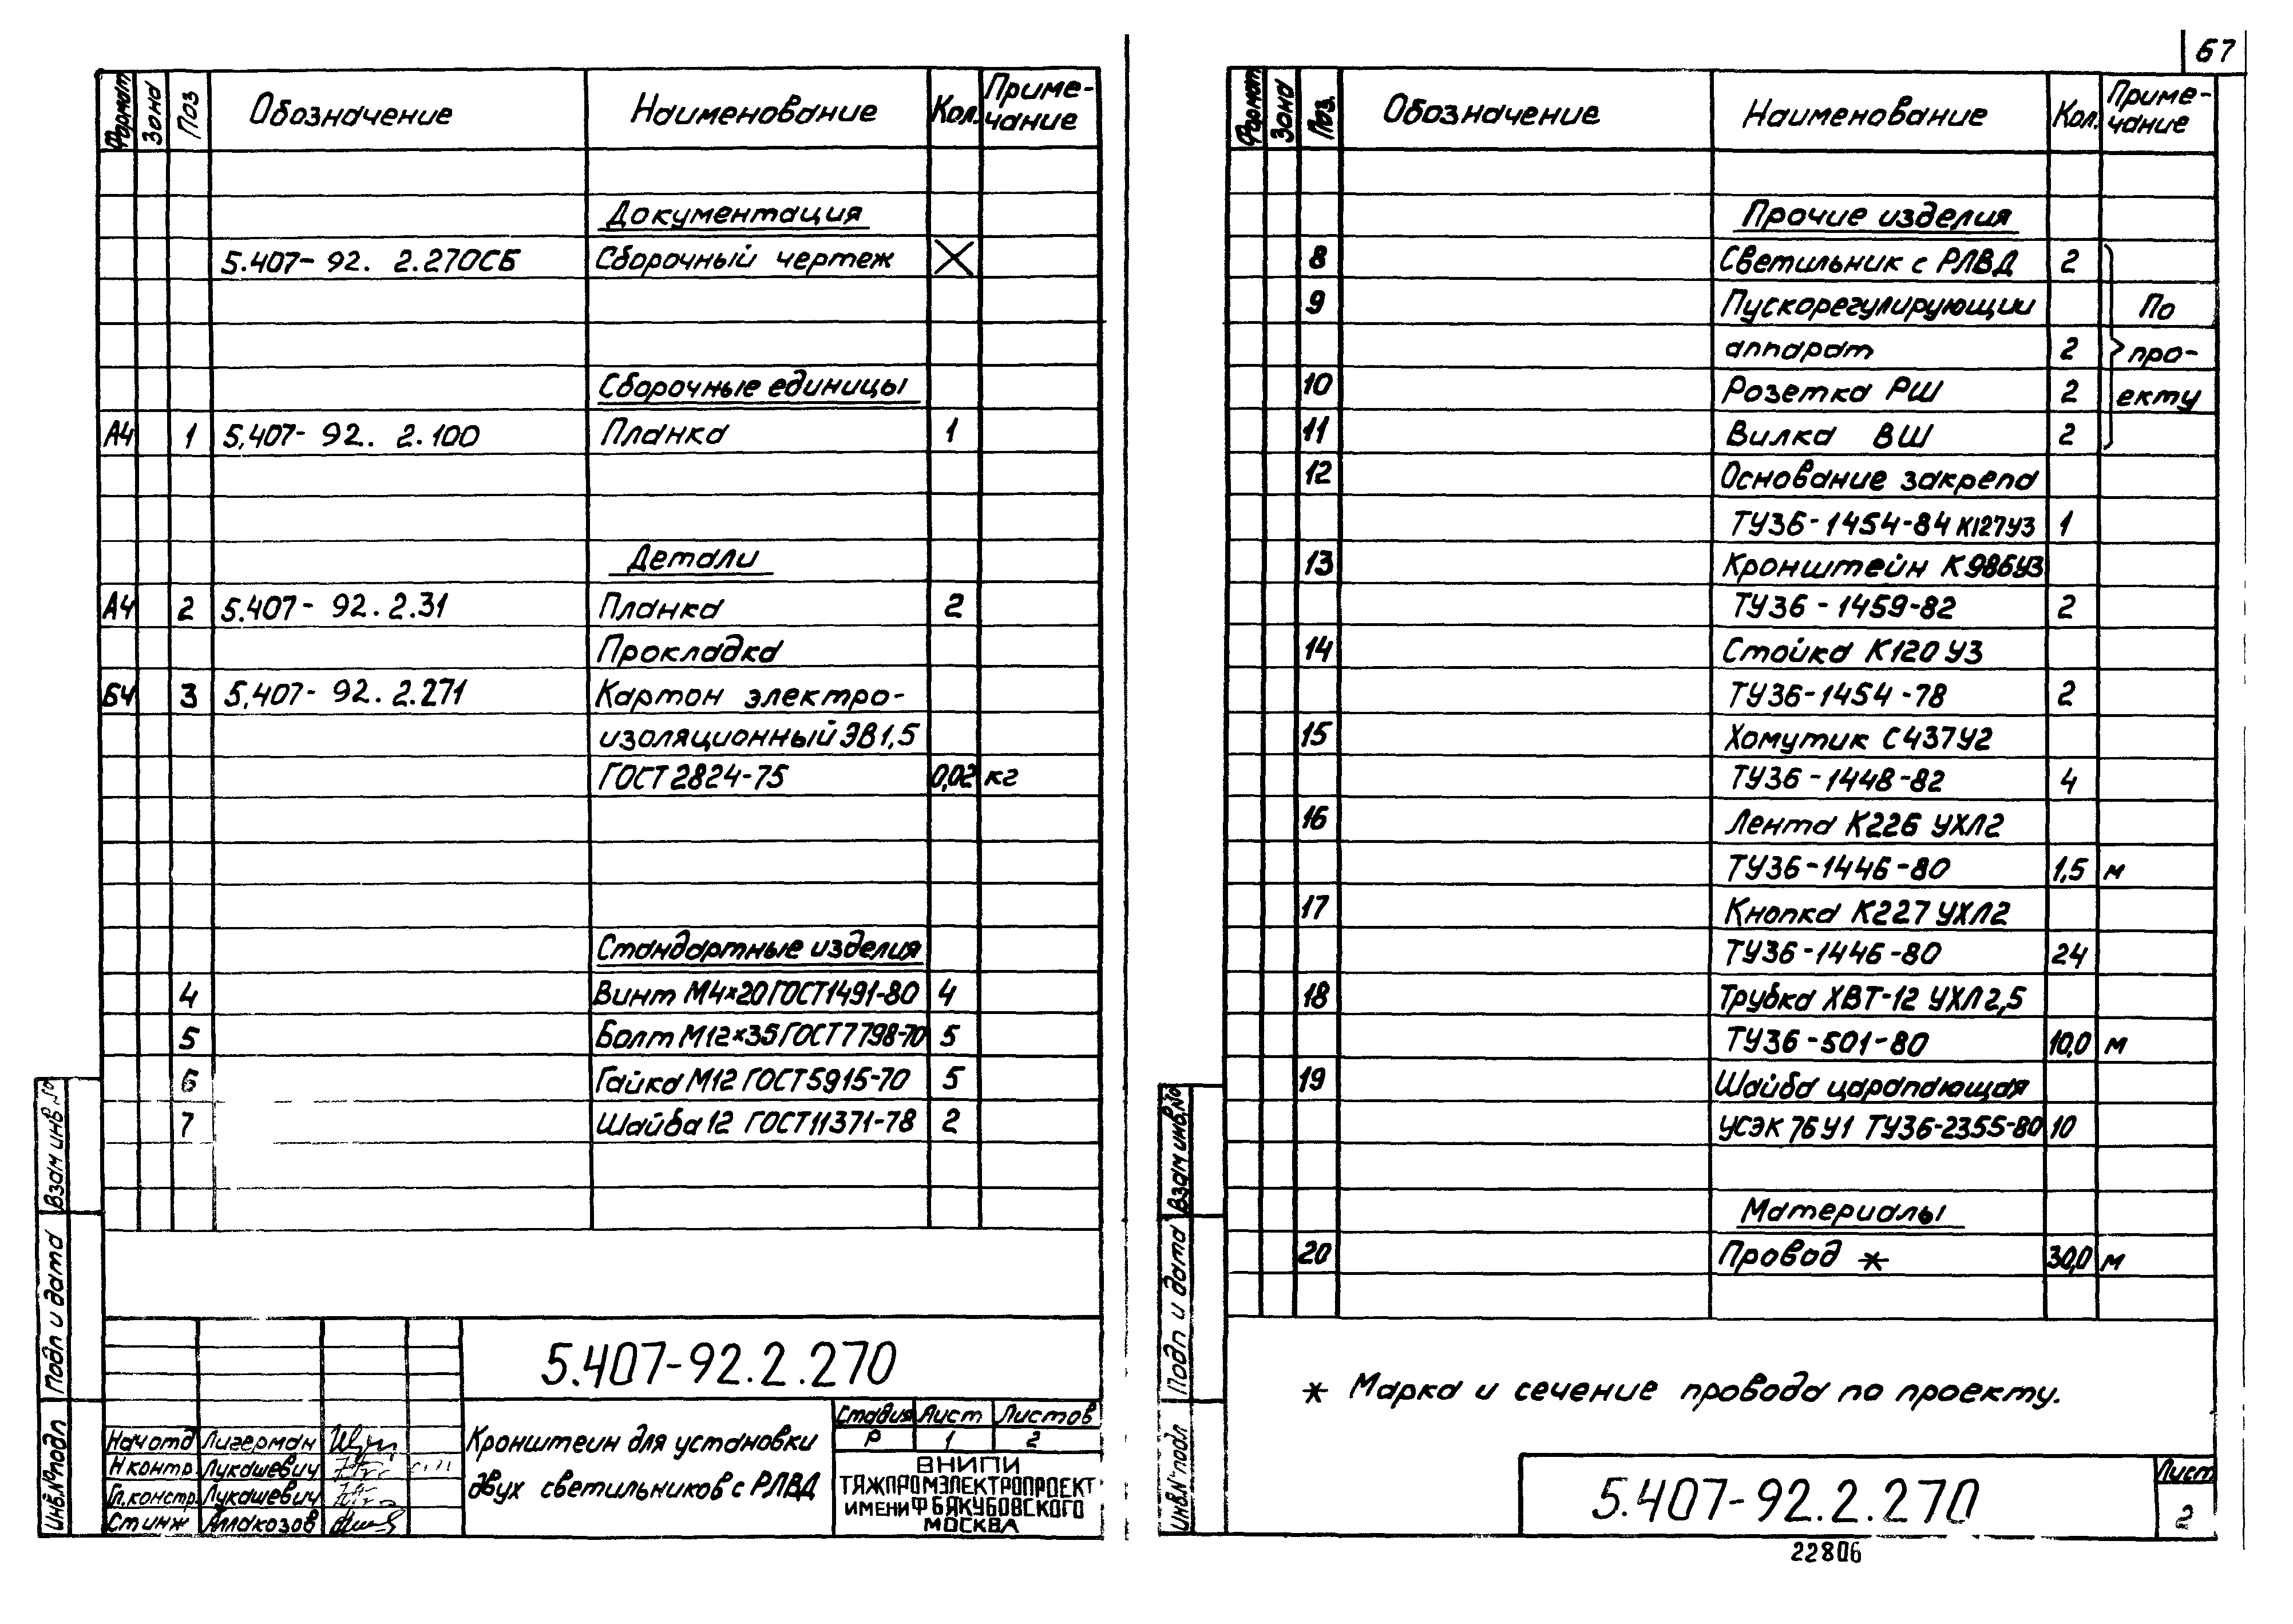 67
Формат Зона Поз Обозначение Наименование Кол. Приме-
чание
Документация
5.407-92. 2.270СБ Сборочный чертеж
Сборочные единицы
А4 1 5.407-92. 2.100 Планка 1
Детали
А4 2 5.407-92.2.31 Планка 2
Прокладка
Б4 3 5.407-92.2.271 Картон электро-
изоляционный ЭВ1,5
ГОСТ 2824-75 0,02 кг
Стандартные изделия
4 Винт М4×20 ГОСТ1491-80 4
5 Болт М12×35 ГОСТ7798-70 5
6 Гайка М12 ГОСТ5915-70 5
7 Шайба 12 ГОСТ11371-78 2
5.407-92.2.270
Кронштеин для установки
двух светильников с РЛВД
Стадия Лист Листов
Р 1 2
ВНИПИ
ТЯЖПРОМЭЛЕКТРОПРОЕКТ
ИМЕНИ Ф БЯКУБОВСКОГО
МОСКВА
Нач отд Лигерман
Н контр Лукашевич
Гл.констр Лукашевич
Ст инж Аллакозов
Инв.№подл Подп и дата Взам инв.№
Формат Зона Поз. Обозначение Наименование Кол. Приме-
чание
Прочие изделия
8 Светильник с РЛВД 2
9 Пускорегулирующии По
аппарат 2 про-
10 Розетка РШ 2 екту
11 Вилка ВШ 2
12 Основание закрепа
ТУ36-1454-84 К127У3 1
13 Кронштейн К986У3
ТУ36-1459-82 2
14 Стойка К120 У3
ТУ36-1454-78 2
15 Хомутик С437У2
ТУ36-1448-82 4
16 Лента К226 УХЛ2
ТУ36-1446-80 1,5 м
17 Кнопка К227 УХЛ2
ТУ36-1446-80 24
18 Трубка ХВТ-12 УХЛ2,5
ТУ36-501-80 10,0 м
19 Шайба царапающая
УСЭК 76У1 ТУ36-2355-80 10
Материалы
20 Провод * 30,0 м
* Марка и сечение провода по проекту.
Инв.№подл Подп и дата Взам инв.№
5.407-92.2.270
Лист
2
22806